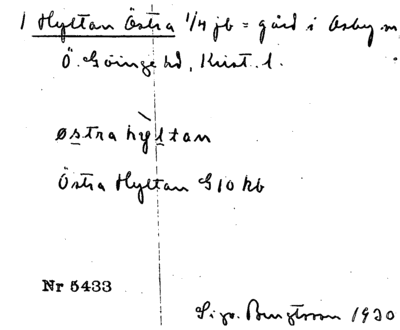 1 Hyltan Östra 1/4 jb = gård i Osby sn
Ö. Göinge hd, Krist. l.
østra hỳltan
Östra Hyltan GIO Kb
Nr 5433
Sigv. Bengtsson 1930